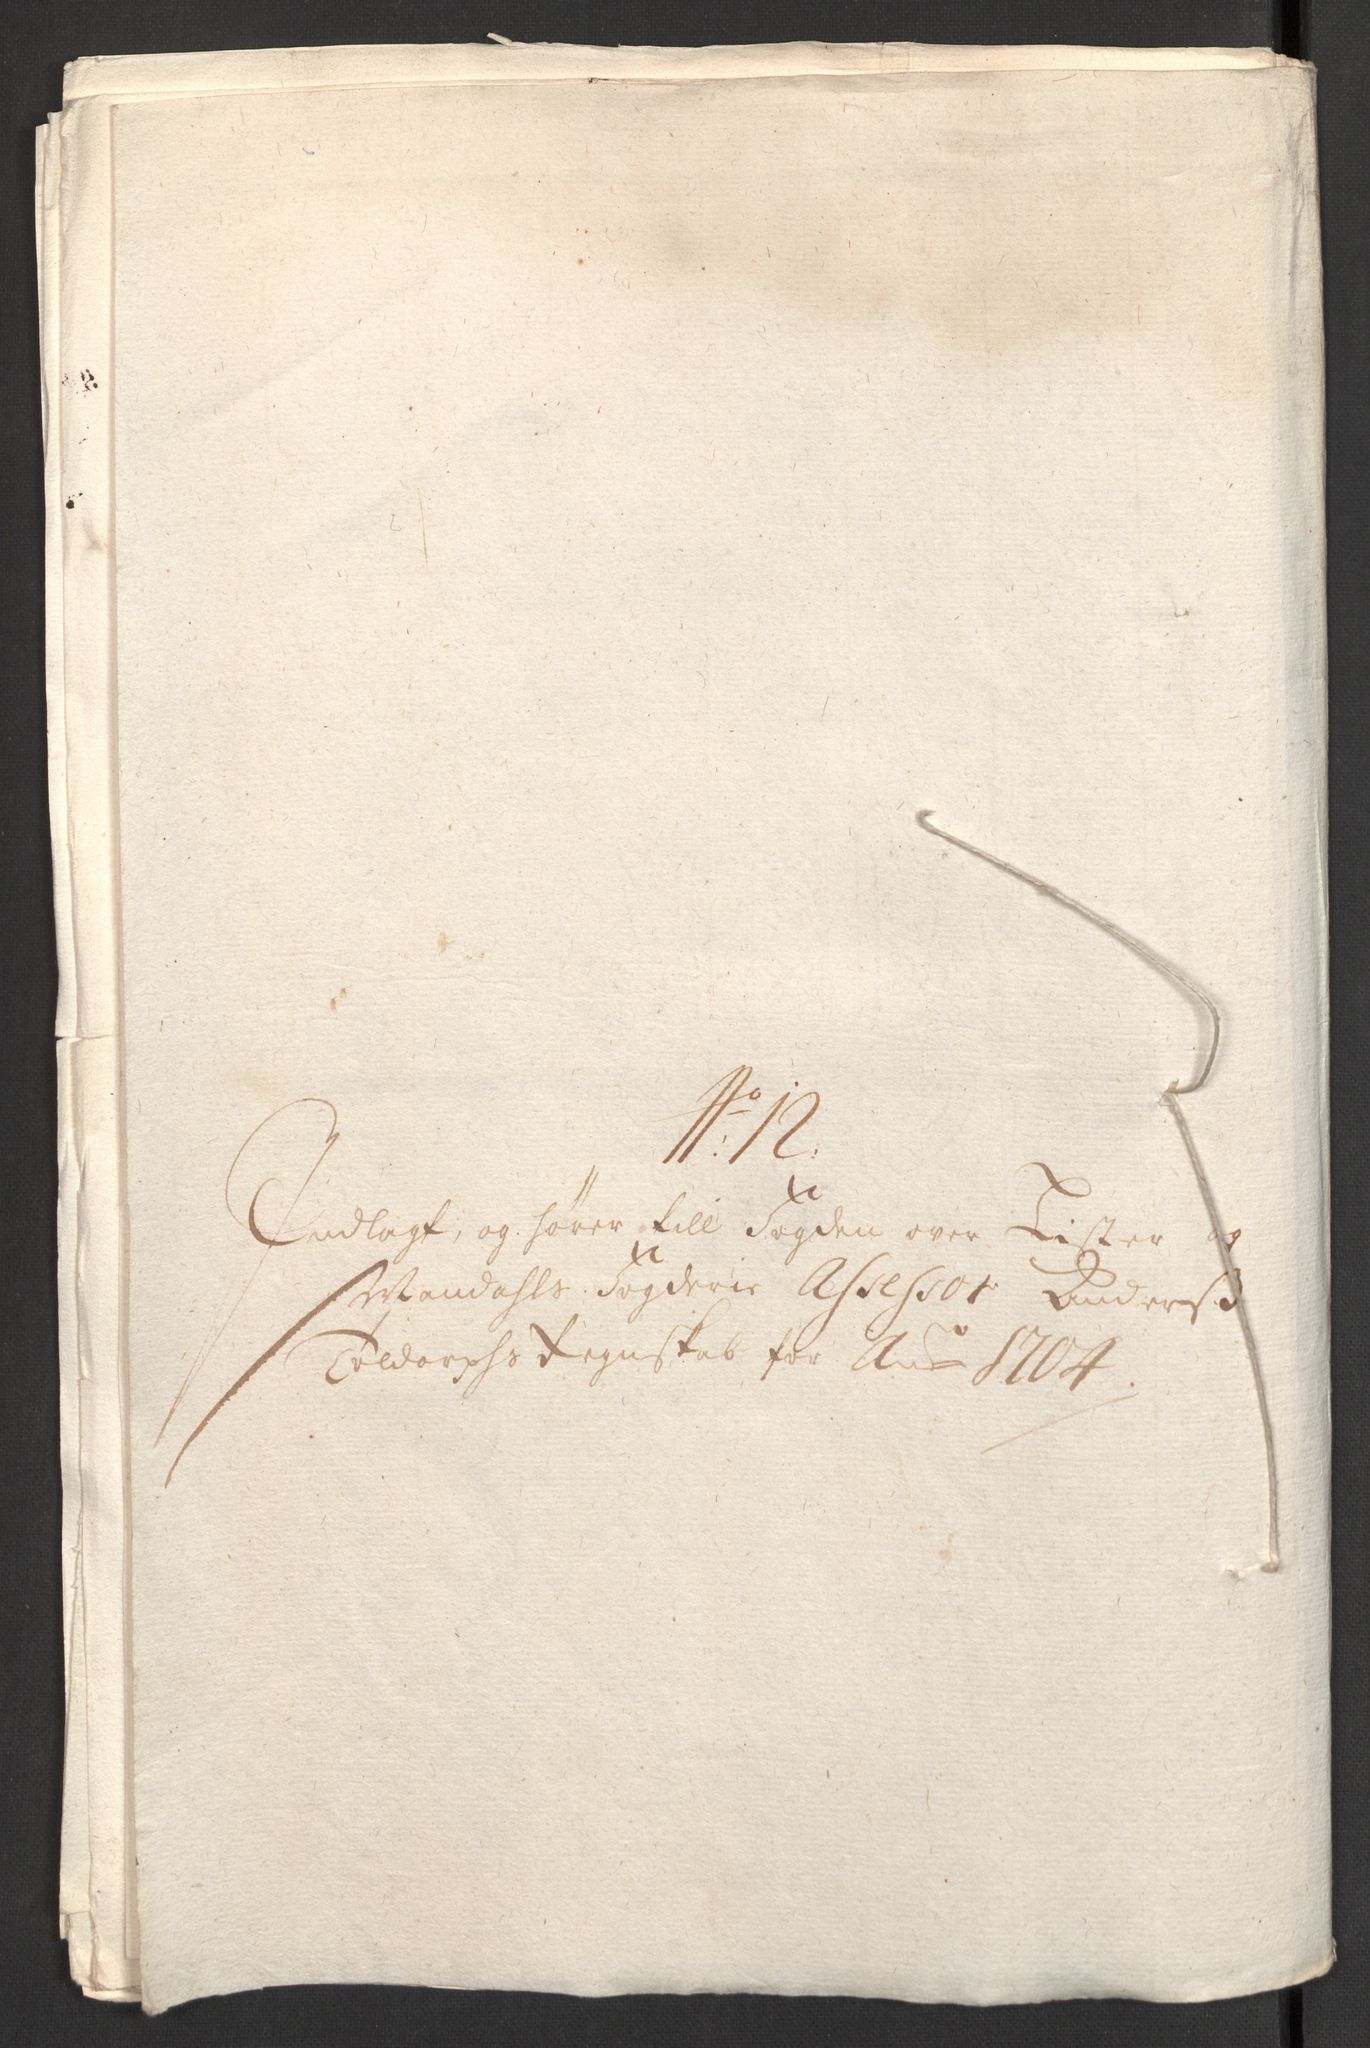 No: 12.
Indlagt, og hører till Fogden over Lister og
Mandahls Fogderie Assessor Anderss
Toldorphs Regnskab for Anno 1704.